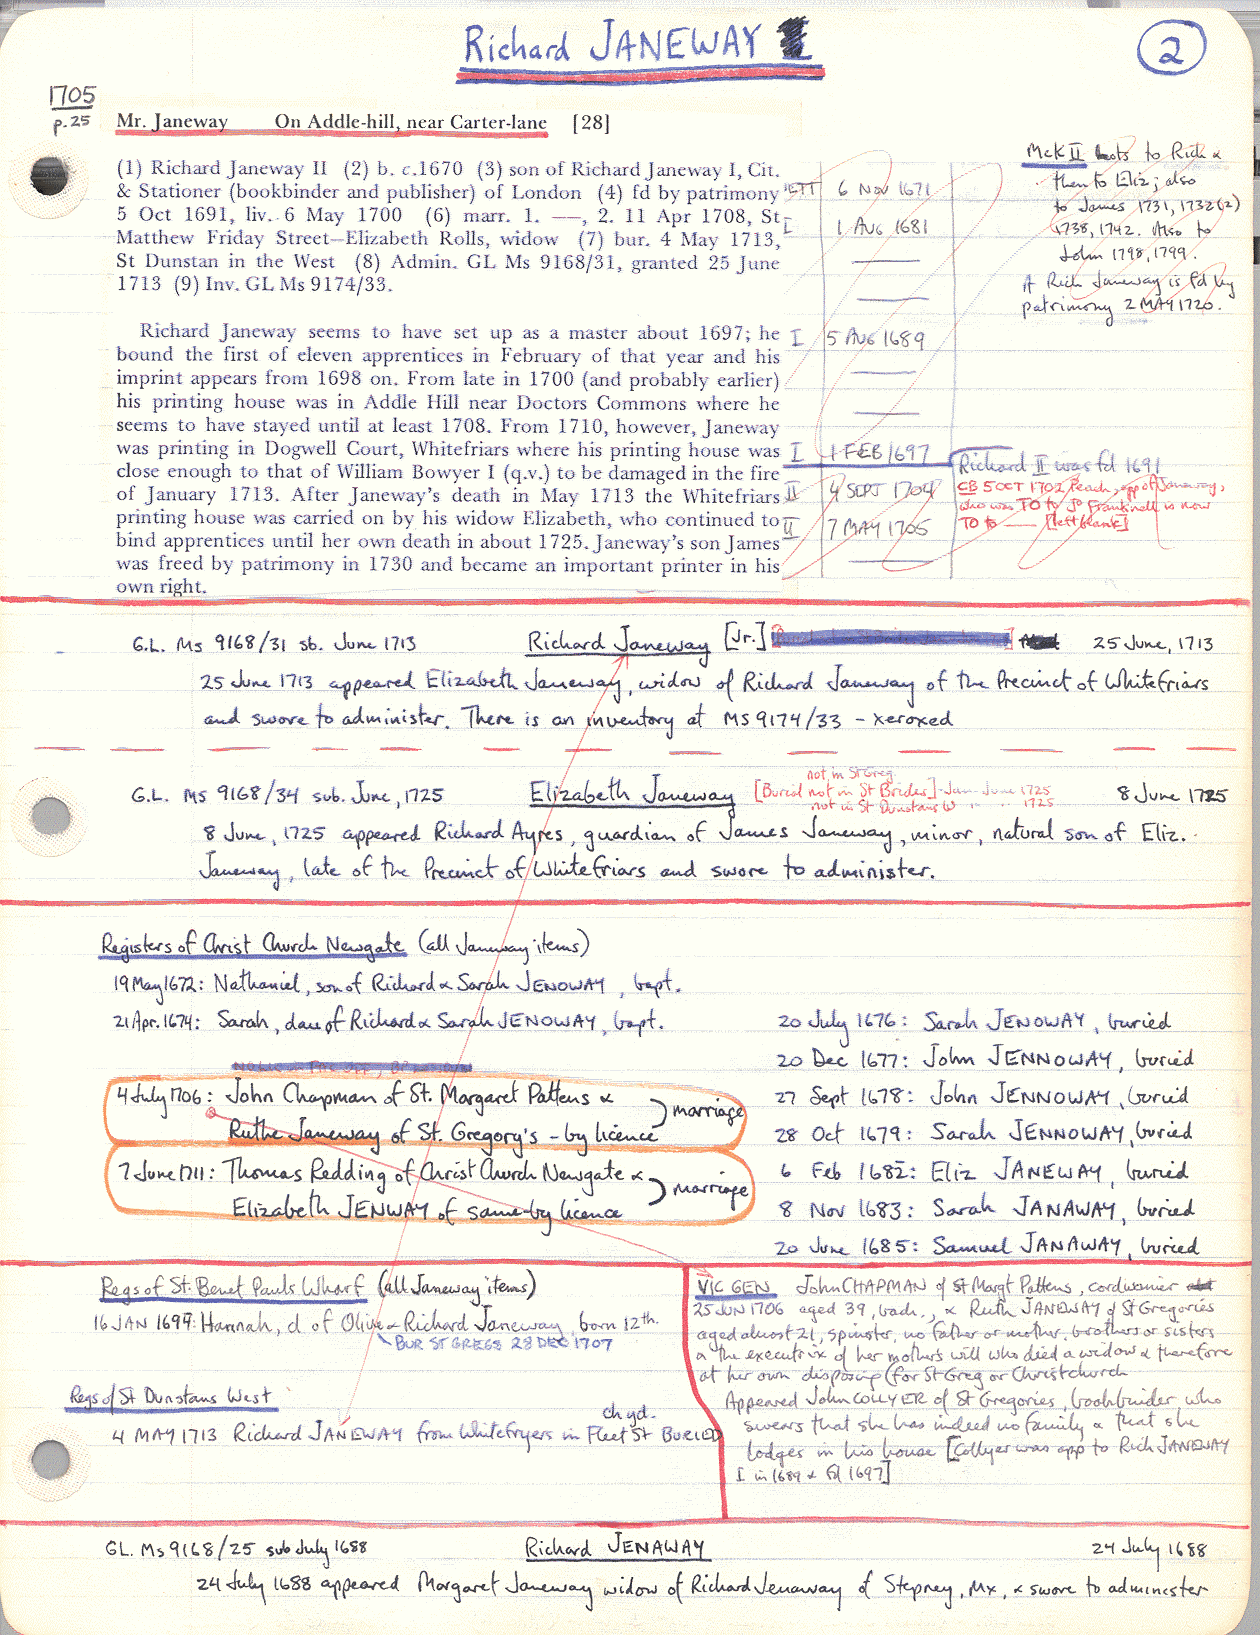 Richard JANEWAY
2
1705
p.25
Mr. Janeway On Addle-hill, near Carter-lane [28]
(1) Richard Janeway II (2) b. c.1670 (3) son of Richard Janeway I, Cit.
& Stationer (bookbinder and publisher) of London (4) fd by patrimony
5 Oct 1691, liv. 6 May 1700 (6) marr. 1. —, 2. 11 Apr 1708, St
Matthew Friday Street—Elizabeth Rolls, widow (7) bur. 4 May 1713,
St Dunstan in the West (8) Admin. GL Ms 9168/31, granted 25 June
1713 (9) Inv. GL Ms 9174/33.
Richard Janeway seems to have set up as a master about 1697; he
bound the first of eleven apprentices in February of that year and his
imprint appears from 1698 on. From late in 1700 (and probably earlier)
his printing house was in Addle Hill near Doctors Commons where he
seems to have stayed until at least 1708. From 1710, however, Janeway
was printing in Dogwell Court, Whitefriars where his printing house was
close enough to that of William Bowyer I (q.v.) to be damaged in the fire
of January 1713. After Janeway's death in May 1713 the Whitefriars
printing house was carried on by his widow Elizabeth, who continued to
bind apprentices until her own death in about 1725. Janeway's son James
was freed by patrimony in 1730 and became an important printer in his
own right.
6 NOV 1671
I 1 AUG 1681
I 5 AUG 1689
I 1 FEB 1697
II 4 SEPT 1704
II 7 MAY 1705
McK II bots to Rich &
then to Eliz; also
to James 1731, 1732(2)
1738, 1742. Also to
John 1798, 1799.
A Rich Janeway is fd by
patrimony 2 MAY 1720.
Richard II was fd 1691
CB 5 OCT 1702 Peach, app of Janeway,
who was TO to Jo Franknell is now
TO to —— [left blank]
G.L. Ms 9168/31 sb. June 1713 Richard Janeway [Jr.] 25 June, 1713
25 June 1713 appeared Elizabeth Janeway, widow of Richard Janeway of the Precinct of Whitefriars
and swore to administer. There is an inventory at MS 9174/33 - xeroxed
not in St Greg.
G.L. MS 9168/34 sub. June, 1725 Elizabeth Janeway [Buried not in St Brides] Jan-June 1725 8 June 1725
not in St Dunstans W " " 1725
8 June, 1725 appeared Richard Ayres, guardian of James Janeway, minor, natural son of Eliz.
Janeway, late of the Precinct of Whitefriars and swore to administer.
Registers of Christ Church Newgate (all Janeway items)
19 May 1672: Nathaniel, son of Richard & Sarah JENOWAY, bapt.
21 Apr. 1674: Sarah, dau of Richard & Sarah JENOWAY, bapt.
4 July 1706: John Chapman of St. Margaret Pattens &
Ruthe Janeway of St. Gregory's - by licence
marriage
7 June 1711: Thomas Redding of Christ Church Newgate &
Elizabeth JENWAY of same-by licence
marriage
20 July 1676: Sarah JENOWAY, buried
20 Dec 1677: John JENNOWAY, buried
27 Sept 1678: John JENNOWAY, buried
28 Oct 1679: Sarah JENNOWAY, buried
6 Feb 1682: Eliz JANEWAY, buried
8 Nov 1683: Sarah JANAWAY, buried
20 June 1685: Samuel JANAWAY, buried
Regs of St. Benet Pauls Wharf (all Janeway items)
16 JAN 1697: Hannah, d of Olive & Richard Janeway, born 12th.
BUR ST GREGS 28 DEC 1707
Regs of St Dunstans West
chyd.
4 MAY 1713 Richard JANEWAY from Whitefryers in Fleet St BURIED
VIC GEN John CHAPMAN of St Margt Pattens, cordwainer
25 JUN 1706 aged 39, bach., & Ruth JANEWAY of St Gregories
aged almost 21, spinster, no father or mother, brothers or sisters
& the executrix of her mother's will who died a widow & therefore
at her own disposing (for St Greg or Christchurch
Appeared John COLLYER of St Gregories, bookbinder, who
swears that she has indeed no family & that she
lodges in his house [Collyer was app to Rich JANEWAY
I in 1689 & fd 1697]
GL. Ms 9168/25 sub July 1688 Richard JENAWAY 24 July 1688
24 July 1688 appeared Margaret Janeway widow of Richard Jenaway of Stepney, Mx, & swore to administer